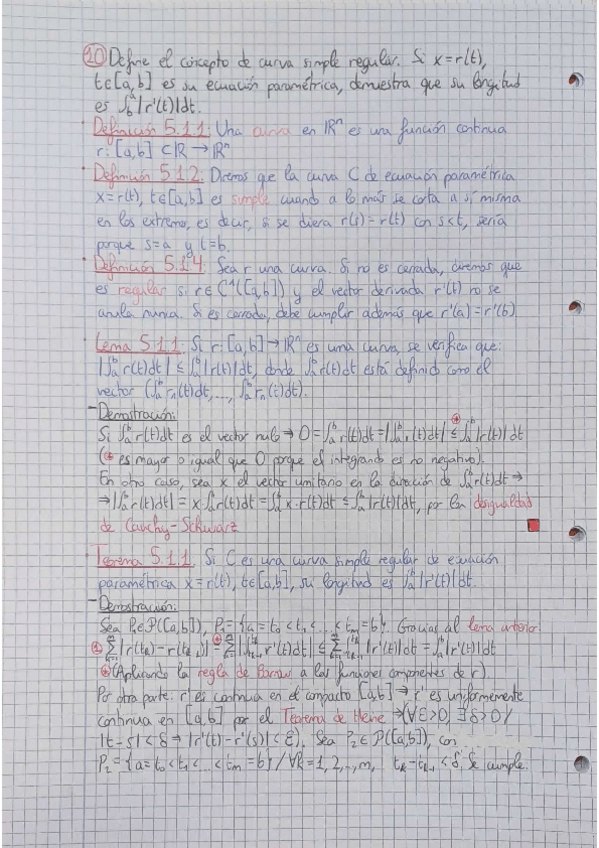 ⑩ Define el concepto de curva simple regular. Si x=r(t),
t∈[a,b] es su ecuación paramétrica, demuestra que su longitud
es ∫_b^a |r'(t)|dt.
· Definición 5.1.1: Una curva en ℝⁿ es una función continua
r: [a,b] ⊂ ℝ → ℝⁿ
· Definición 5.1.2: Diremos que la curva C de ecuación paramétrica
x=r(t), t∈[a,b] es simple cuando a lo más se corta a sí misma
en los extremos, es decir, si se diera r(s)=r(t) con s<t, sería
porque s=a y t=b.
· Definición 5.1.4: Sea r una curva. Si no es cerrada, diremos que
es regular si r∈C¹([a,b]) y el vector derivada r'(t) no se
anula nunca. Si es cerrada, debe cumplir además que r'(a)=r'(b)
· Lema 5.1.1: Si r: [a,b]→ℝⁿ es una curva, se verifica que:
|∫_a^b r(t)dt| ≤ ∫_a^b |r(t)|dt, donde ∫_a^b r(t)dt está definido como el
vector (∫_a^b r₁(t)dt,..., ∫_a^b rₙ(t)dt).
- Demostración:
Si ∫_a^b r(t)dt es el vector nulo → 0=∫_a^b r(t)dt=|∫_a^b r(t)dt| ≤ ∫_a^b |r(t)|dt
(* es mayor o igual que 0 porque el integrando es no negativo).
En otro caso, sea x el vector unitario en la dirección de ∫_a^b r(t)dt →
→ |∫_a^b r(t)dt| = x·∫_a^b r(t)dt = ∫_a^b x·r(t)dt ≤ ∫_a^b |r(t)|dt, por la desigualdad
de Cauchy-Schwarz
· Teorema 5.1.1: Si C es una curva simple regular de ecuación
paramétrica x=r(t), t∈[a,b], su longitud es ∫_a^b |r'(t)|dt.
- Demostración:
Sea P₁∈P([a,b]), P₁={a=t₀<t₁<...<t_m=b}. Gracias al lema anterior:
① Σ_{k=1}^m |r(t_k)-r(t_{k-1})| = Σ_{k=1}^m |∫_{t_{k-1}}^{t_k} r'(t)dt| ≤ Σ_{k=1}^m ∫_{t_{k-1}}^{t_k} |r'(t)|dt = ∫_a^b |r'(t)|dt
(Aplicando la regla de Barrow a las funciones componentes de r).
Por otra parte: r' es continua en el compacto [a,b] → r' es uniformemente
continua en [a,b] por el Teorema de Heine →(∀ε>0, ∃δ>0/
|t-s|<δ → |r'(t)-r'(s)|<ε). Sea P₂∈P([a,b]), con
P₂={a=t₀<t₁<...<t_m=b}/∀k=1,2,..,m, t_k-t_{k-1}<δ. Se cumple: